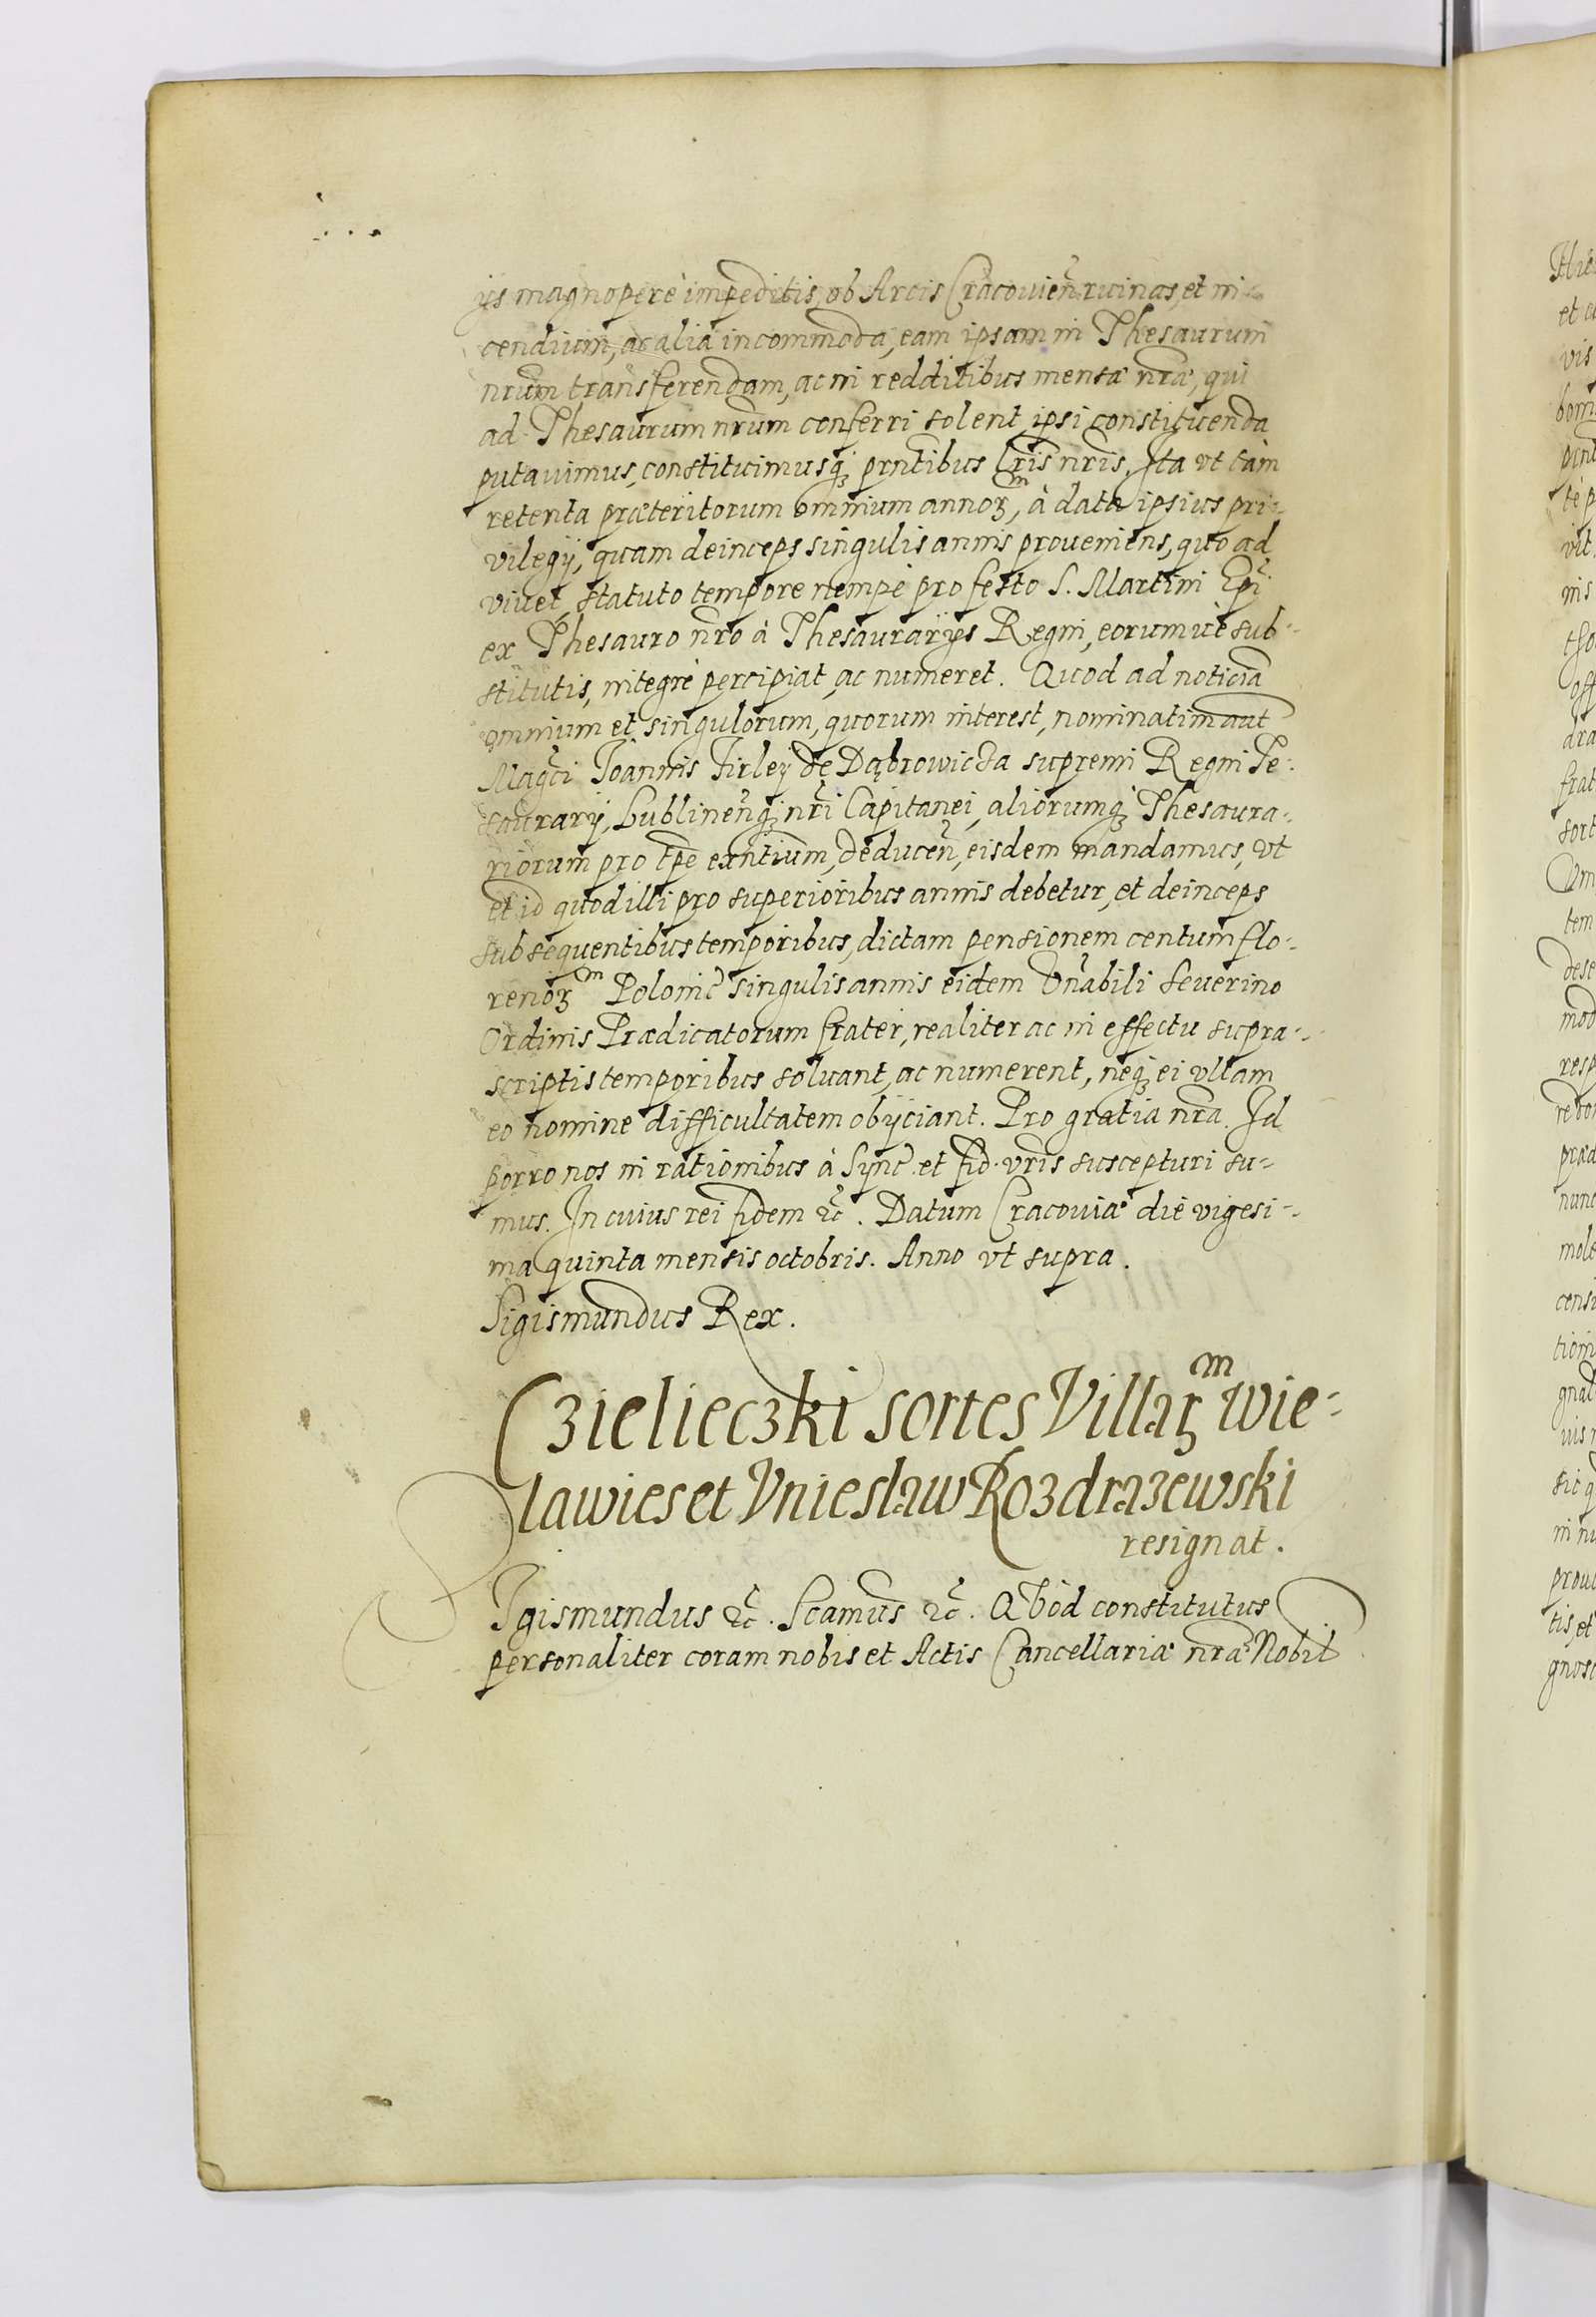 ijs magnoperè impeditis, ob Arcis Cracouień ruinas, et in-
cendium, ac alia incommoda, eam ipsam in Thesaurum
nrum transferendam, ac in redditibus mensæ nræ, qui
ad Thesaurum nrum conferri solent, ipsi constituenda
putauimus, constituimusq; prntibus Lris nris. Ita vt tàm
retenta præteritorum omnium annoꝝm, à data ipsius pri-
vilegij, quam deinceps singulis annis proueniens, quo ad
viuet, statuto tempore nempè pro festo S. Martini Epi
ex Thesauro nro à Thesaurarijs Regni, eorumuè sub-
stitutis, integrè percipiat, ac numeret. Quod ad noticia
omnium et singulorum, quorum interest, nominatim aut
Magci Joannis Firley de Dąbrowicza supremi Regni Te-
saurarij, Lublineńq; nri Capitanei, aliorumq; Thesaura-
riorum pro tpe exntium, deduceń, eisdem mandamus, vt
et id quod illi pro superioribus annis debetur, et deinceps
subsequentibus temporibus, dictam pensionem centum flo-
renoꝝm Polonic singulis annis eidem Vnabili Seuerino
Ordinis Prædicatorum frater, realiter ac in effectu supra-
scriptis temporibus soluant, ac numerent, neq; ei vllam
eo nomine difficultatem obijciant. Pro gratia nra. Id
porro nos in rationibus à Sync et fid. vris suscepturi su-
mus. In cuius rei fidem &c. Datum Cracouiæ die vigesi-
ma quinta mensis octobris. Anno vt supra.
Sigismundus Rex.
Czielieczki sortes Villaꝝm Wie-
lawies et Vniesław Rozdrazewski
resignat.
SIgismundus &c. Scamus &c. Quod constitutus
personaliter coram nobis et Actis Cancellariæ nræ Nobil